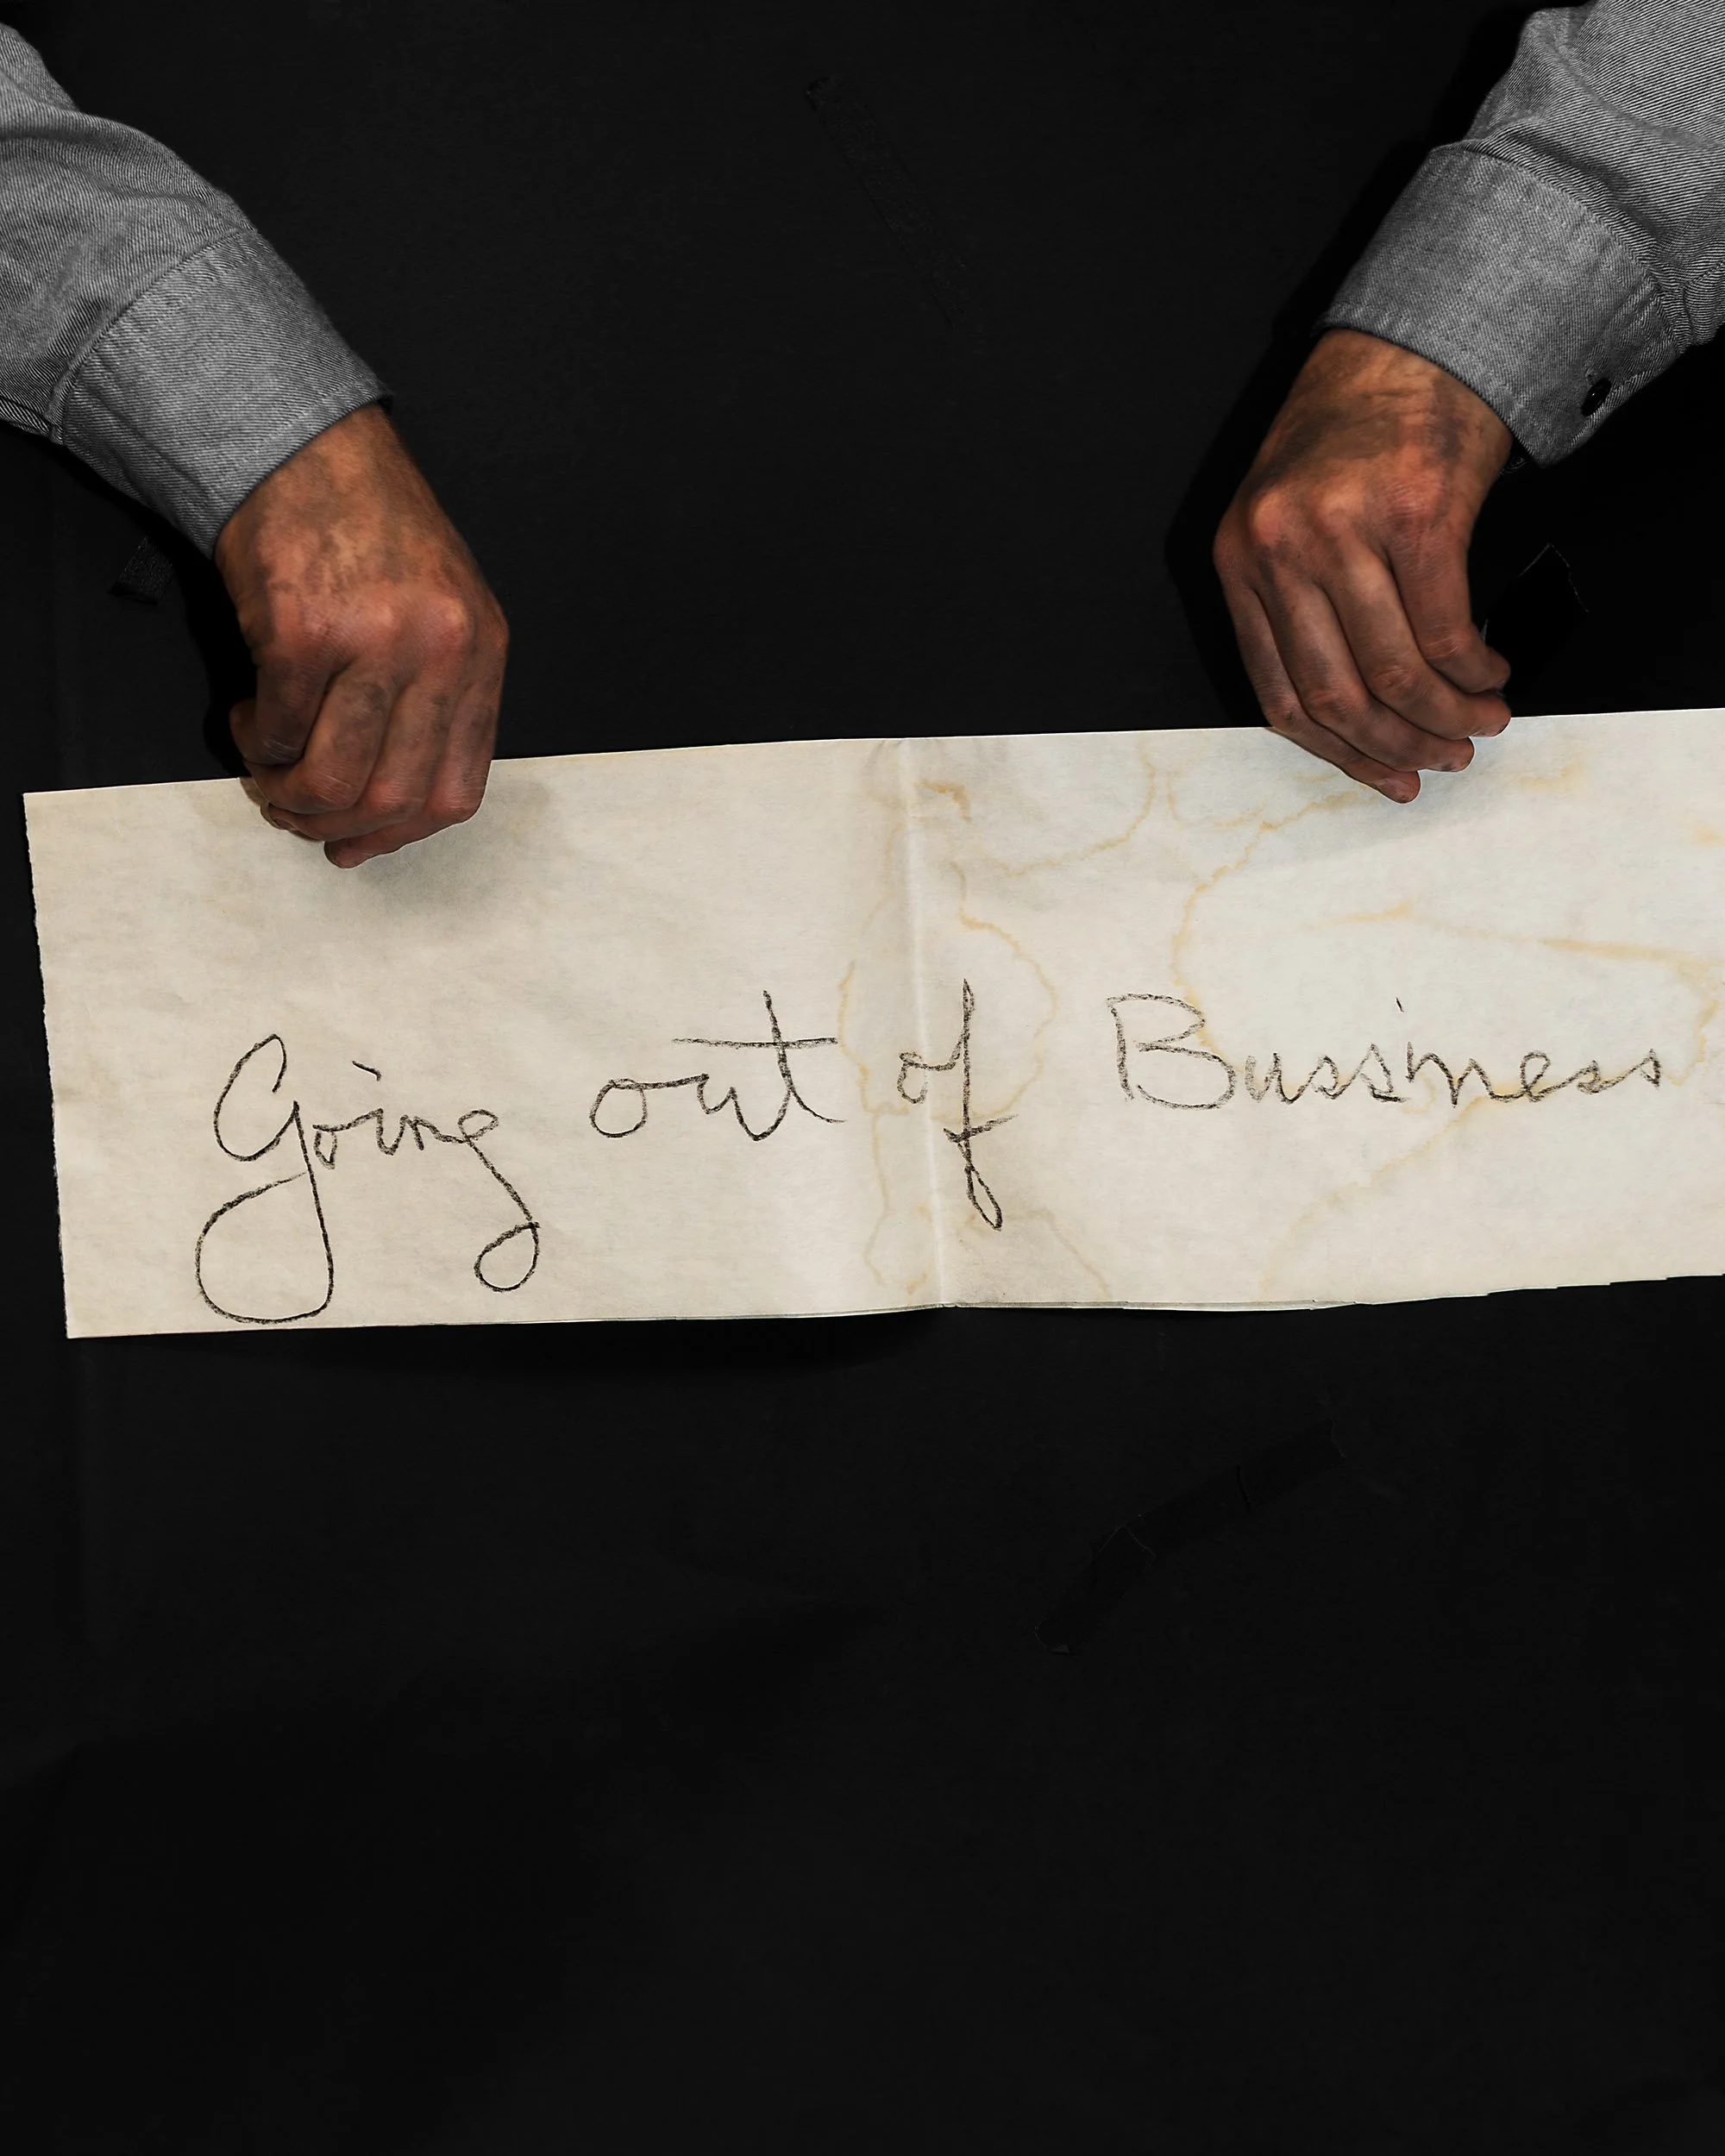 Going out of Bussiness